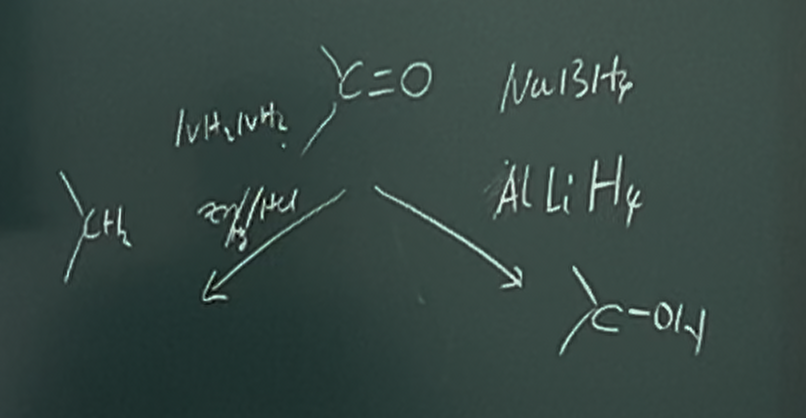 C=O
NaBH4
NH2NH2
AlLiH4
CH2
Zn/Hg/HCl
C-OH